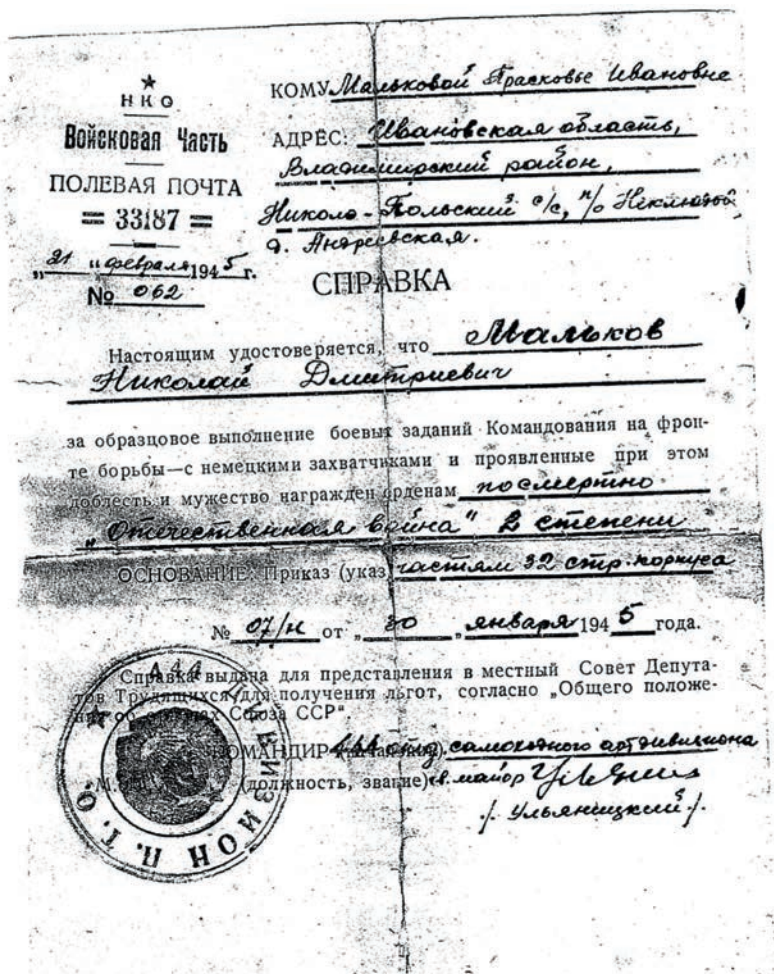 НКО
Войсковая Часть
ПОЛЕВАЯ ПОЧТА
= 33187 =
„21" февраля 1945 г.
№ 062
КОМУ Мальковой Прасковье Ивановне
АДРЕС: Ивановская область,
Владимирский район,
Николо-Польский с/с, п/о
д. Андреевская.
СПРАВКА
Настоящим удостоверяется, что Мальков
Николай Дмитриевич
за образцовое выполнение боевых заданий Командования на фрон-
те борьбы—с немецкими захватчиками и проявленные при этом
доблесть и мужество награжден орденам посмертно
„Отечественная война" 2 степени
ОСНОВАНИЕ: Приказ (указ) частям 32 стр. корпуса
№ 07/н от „30" января 1945 года.
Справка выдана для представления в местный Совет Депута-
тов Трудящихся для получения льгот, согласно „Общего положе-
ния об орденах Союза ССР".
КОМАНДИР 444 отд. самоходного артдивизиона
(должность, звание) гв. майор
/. Ульяницкий ./.
444 ДИВИЗИОН П. Т. О.